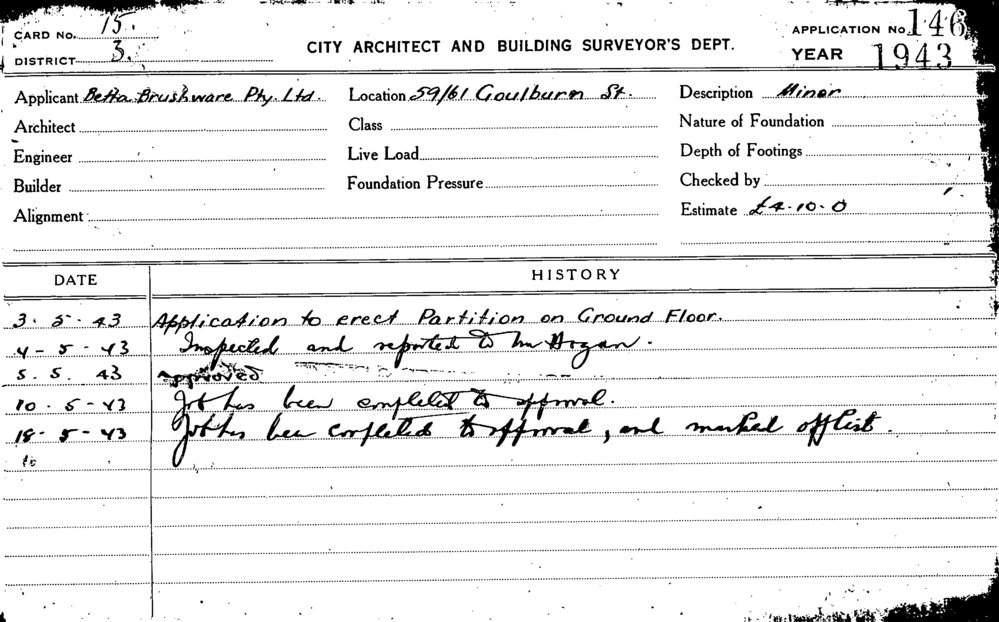 CARD No. 15.
DISTRICT 3.
CITY ARCHITECT AND BUILDING SURVEYOR'S DEPT.
APPLICATION No. 146
YEAR 1943
Applicant Betta Brushware Pty. Ltd. Location 59/61 Goulburn St. Description Minor
Architect Class Nature of Foundation
Engineer Live Load Depth of Footings
Builder Foundation Pressure Checked by
Alignment Estimate £4-10-0
DATE HISTORY
3. 5. 43 Application to erect Partition on Ground Floor.
4-5-43 Inspected and reported to Mr Hogan.
5. 5. 43 approved
10-5-43 Job has been completed to approval.
18-5-43 Job has been completed to approval, and marked off list.